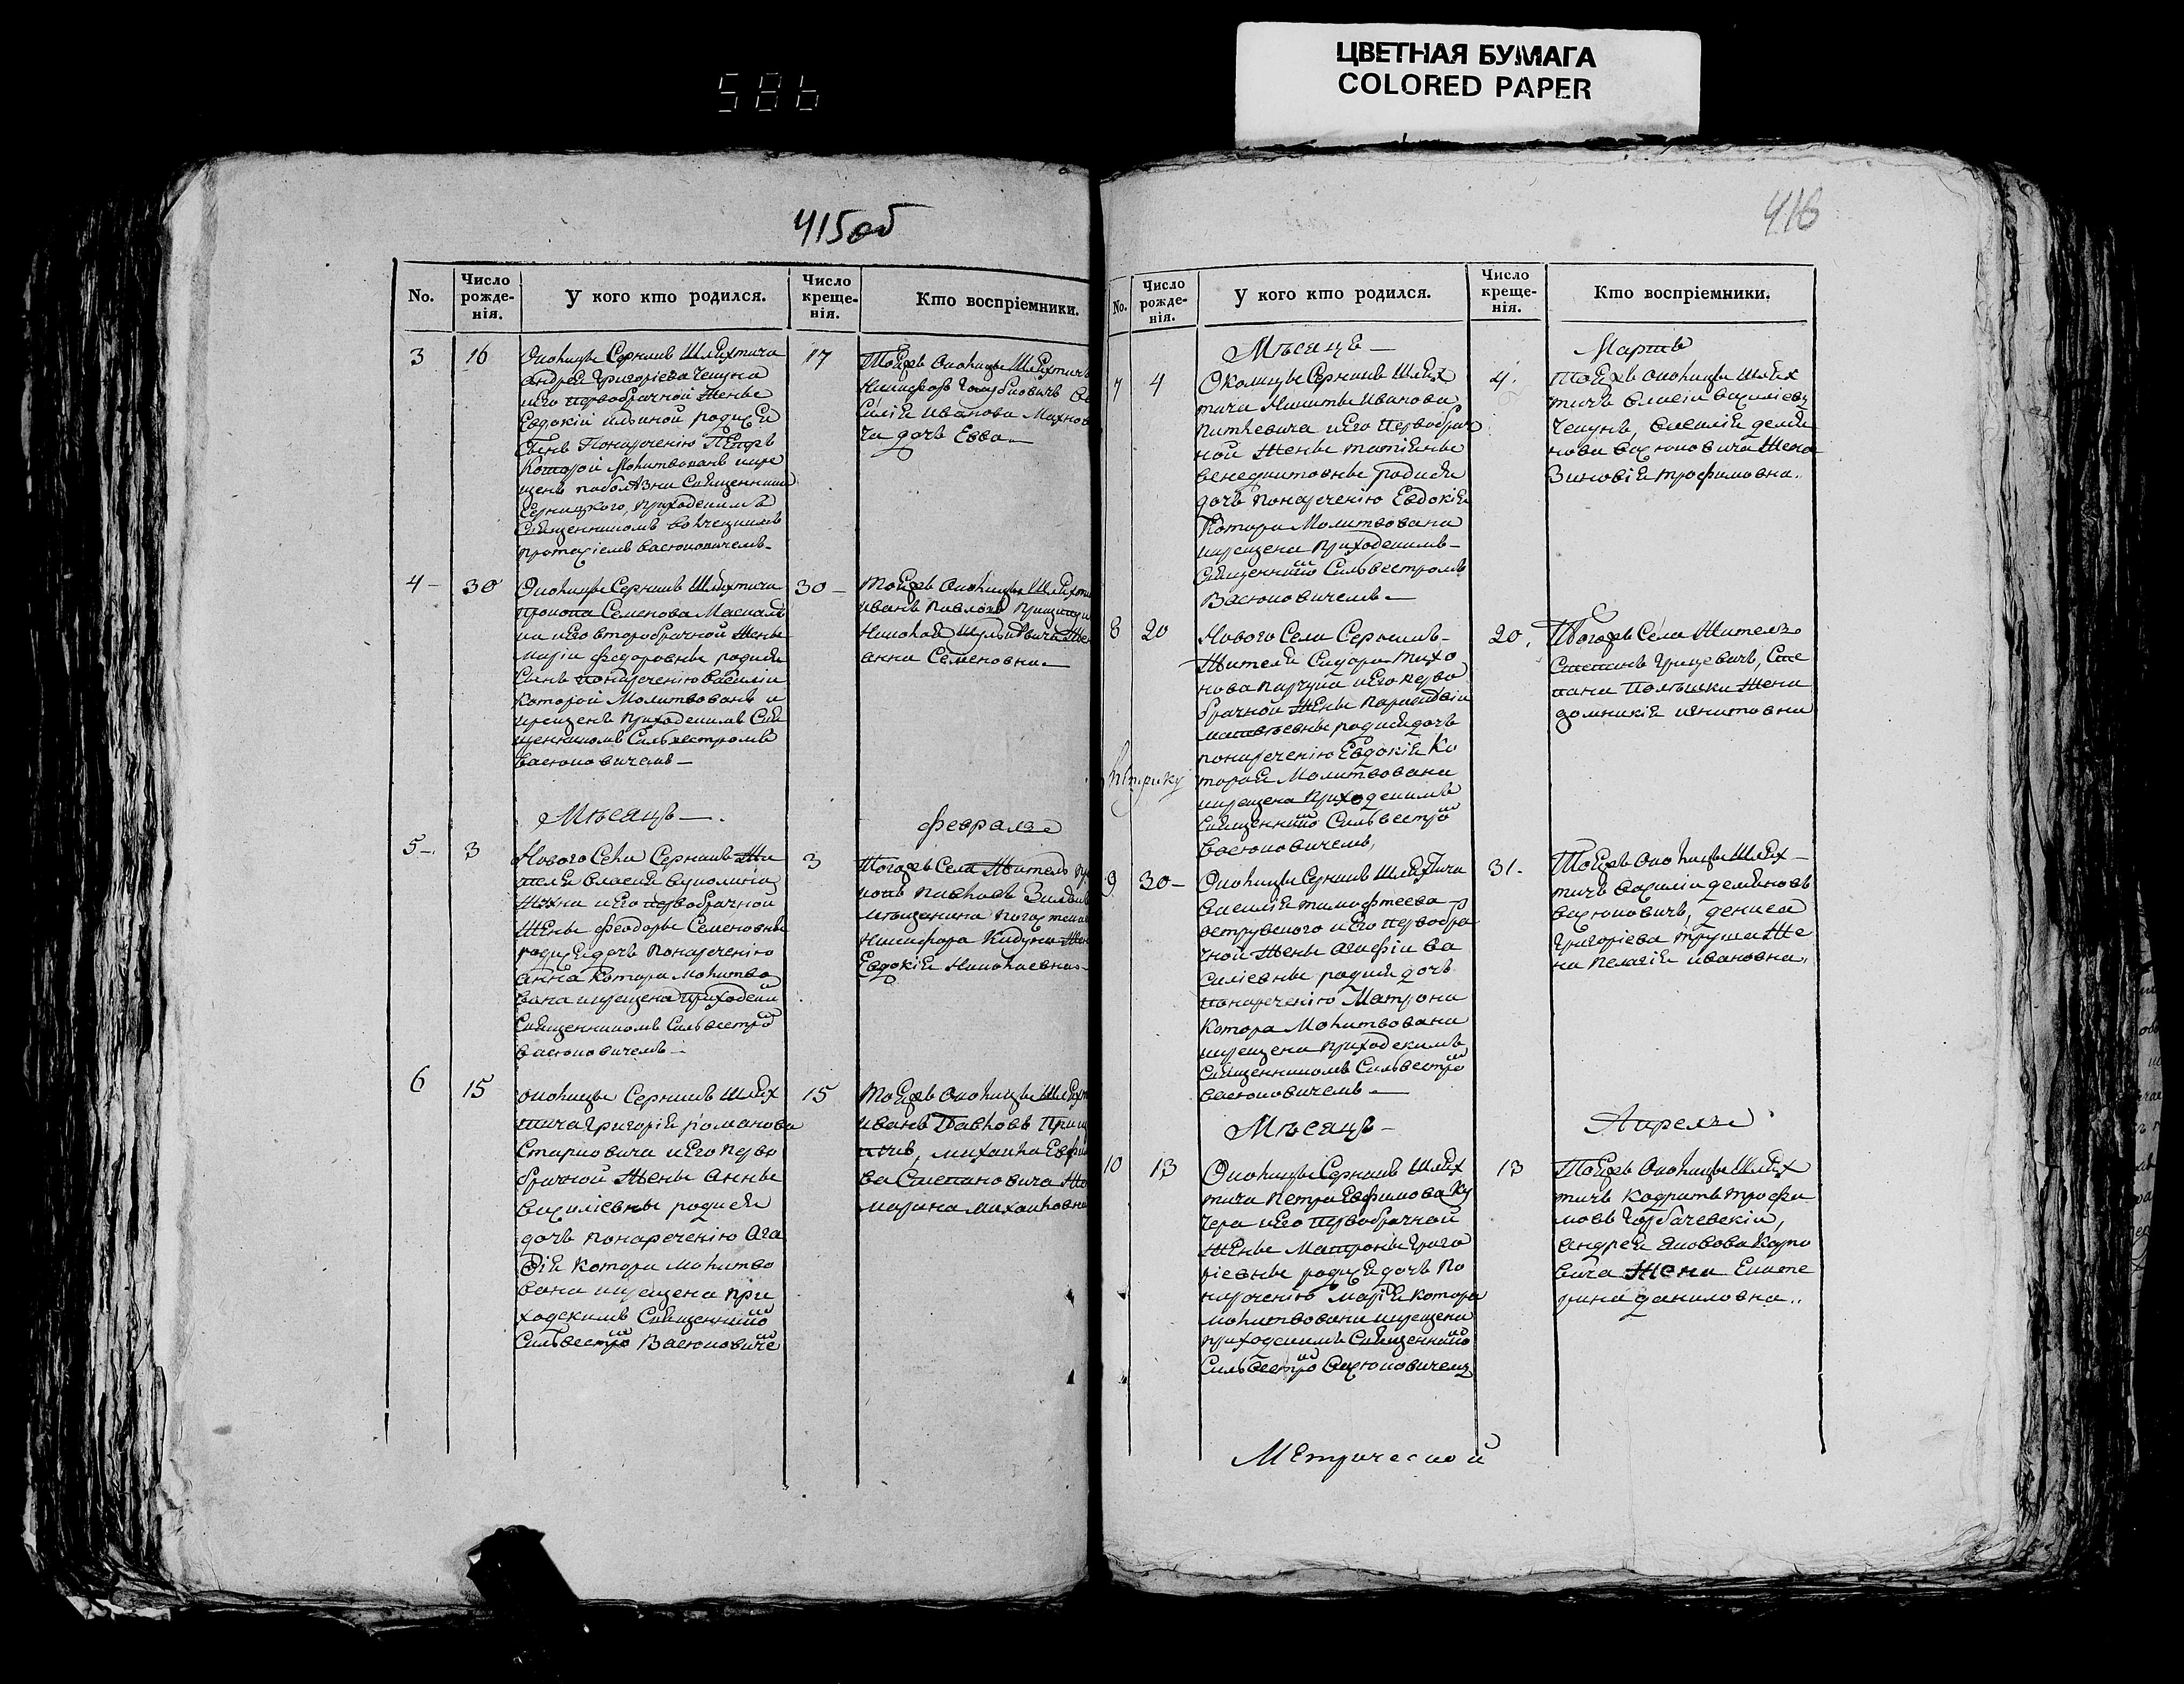 ЦВЕТНАЯ БУМАГА
COLORED PAPER
586
415об
No.
Число рожде-нія.
У кого кто родился.
Число креще-нія.
Кто воспріемники.
3
16
Околицы Серникъ Шляхтича
Андрея Григоріева Чепуна
и его первобрачной Жены
Евдокіи родися
Сынъ Понареченію Петръ
Которой Молитвованъ и кре
щенъ Священника
Серницкого, приходскимъ
Священникомъ
Васюковичемъ
17
Тоеяжъ Околицы Шляхтичъ
Иванова Махнов
дочь Евва
4
30
Околицы Серникъ Шляхтича
Прокопа Семенова
и его второбрачной Жены
Маріи Федоровны родися
Сынъ понареченію Василіи
Которой Молитвованъ и
крещенъ Приходскимъ Свя
щенникомъ Сильвестромъ
Васюковичемъ
30
Тоеяжъ Околицы Шляхти
Иванъ Павловъ
Николая Же
Анна Семеновна
Мѣсяцъ
Февраль
5
3
Нового Села Серникъ Жи
теля
и его первобрачной
Жены Феодоры Семеновны
родися дочь Понареченію
Анна Котора Молитво
вана и крещена Приходски
Священникомъ Сильвестро
Васюковичемъ
3
Тогожъ Села Житель
Никифора Жен
Евдокія Николаевна
6
15
Околицы Серникъ Шлях
тича Григорія Романова
и его перво
брачной Жены Анны
Василіевны родися
дочь понареченію Ага
фія Котора Молитво
вана и крещена при
ходскимъ Священнико
Сильвестро Васюковиче
15
Тоеяжъ Околицы Шляхт
Иванъ Павловъ
Михаила
ва Степановича Же
Марина Михайловна
416
No.
Число рожде-нія.
У кого кто родился.
Число креще-нія.
Кто воспріемники.
Мѣсяцъ
Мартъ
7
4
Околицы Серникъ Шлях
тича Никиты Иванова
Питкевича и его первобрач
ной Жены Татіяны
Венедиктовны родися
дочь понареченію Евдокія
Котора Молитвована
и крещена приходскимъ
Священнико Сильвестромъ
Васюковичемъ
4.
Тоеяжъ Околицы Шлях
тичъ Власіи Василіевъ
Чепунъ, Василія Демя
нова Васюковича Жена
Зиновія Трофимовна
8
20
Нового Села Серникъ
Жителя Сидора Тихо
нова и его перво
брачной Жены
Матвѣевны родися дочь
понареченію Евдокія Ко
торая Молитвована
и крещена приходскимъ
Священнико Сильвестро
Васюковичемъ,
20.
Тогожъ Села Житель
Степанъ Грицевичъ, Сте
пана Жена
Домникія
9
30
Околицы Серникъ Шляхтича
Василія Тимофтеева
Островского и его первобра
чной Жены Агафіи Ва
силіевны родися дочь
понареченію Матрона
Котора Молитвована
и крещена Приходскимъ
Священникомъ Сильвестро
Васюковичемъ
31.
Тоеяжъ Околицы Шлях
тичъ Василіи Демяновъ
Васюковичъ, Дениса
Григоріева Труша Же
на Пелагія Ивановна
Мѣсяцъ
Апрель
10
13
Околицы Серникъ Шлях
тича Петра Евфимова Ку
чера и его первобрачной
Жены Матроны Григо
ріевны родися дочь по
нареченію Марія Котора
Молитвована и крещена
приходскимъ Священнико
Сильвестро Васюковичемъ
13
Тоеяжъ Околицы Шлях
тичъ Кодратъ Трофи
мовъ Горбачевскіи,
Андрея Яковова Карпо
вича Жена Екате
рина Даниловна
Метрической